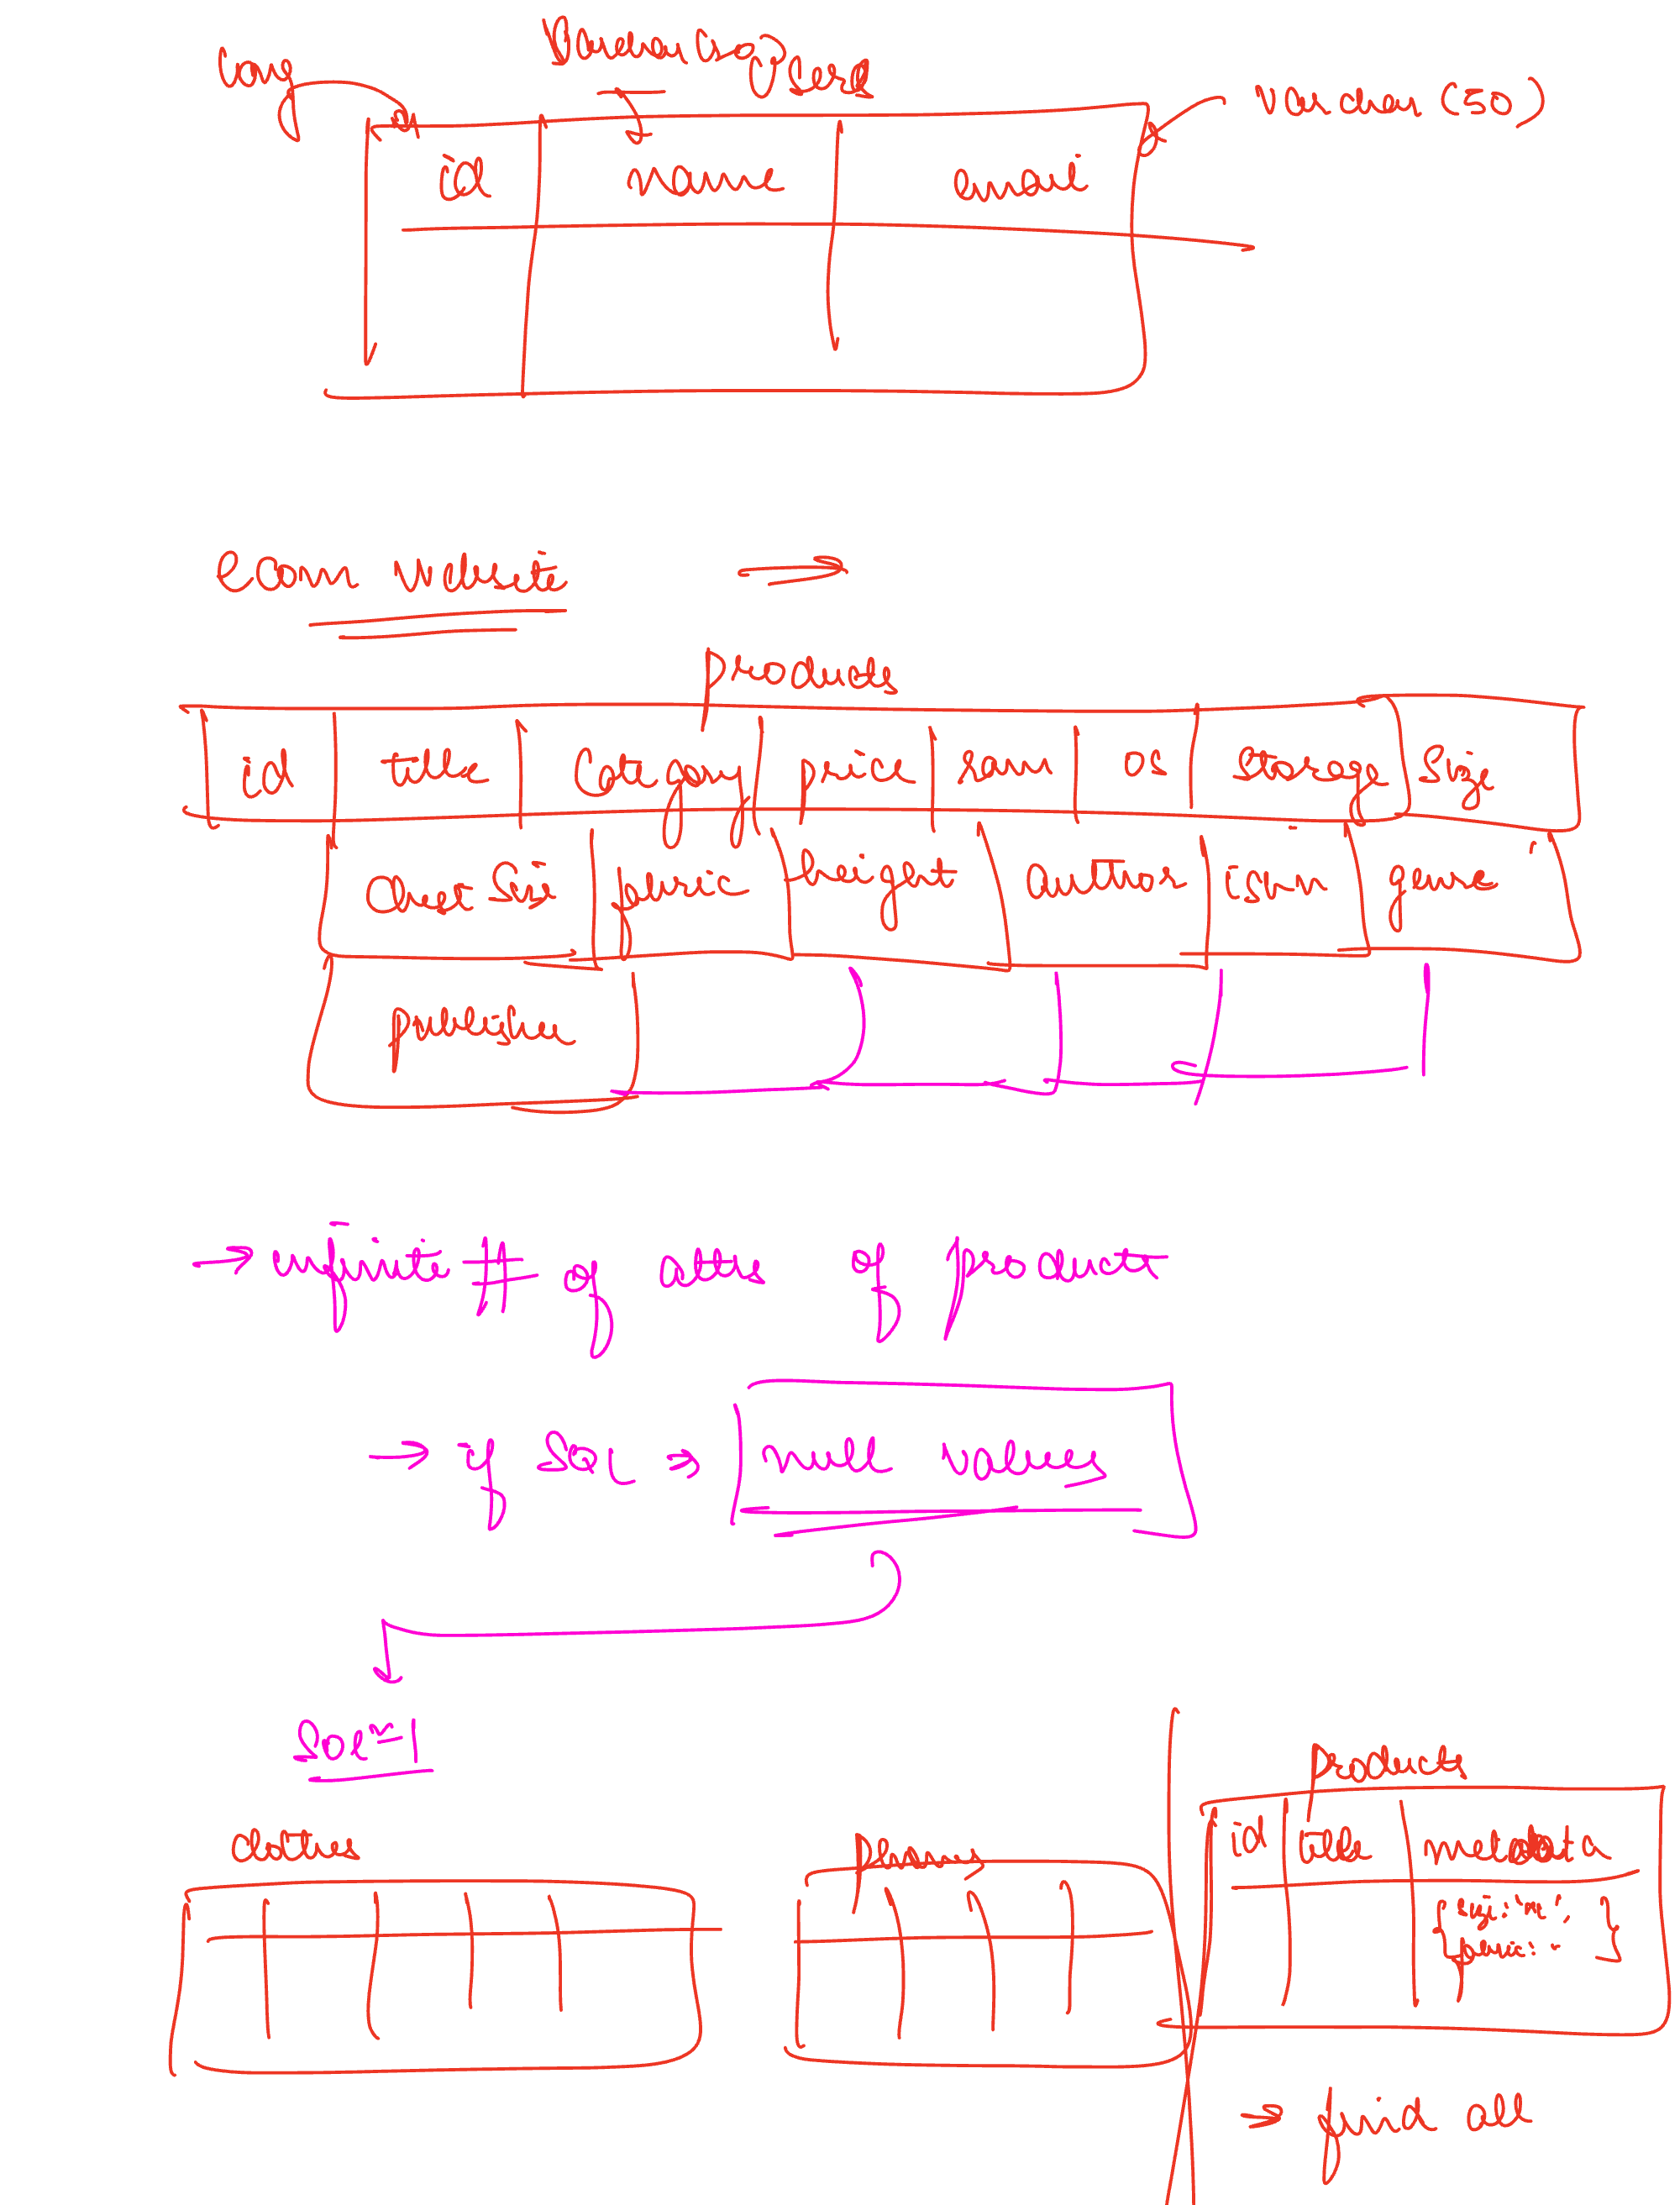 long varchar (50) used
varchar (50)
id name email
ecom website →
products
id title category price ram OS storage size
chest size fabric height author isbn genre
publisher
→ infinite # of attrs of product
→ if SQL → null values
Solⁿ-1
products
clothes phones
id title metadata
{ size: "XL",
fabric: - }
→ find all